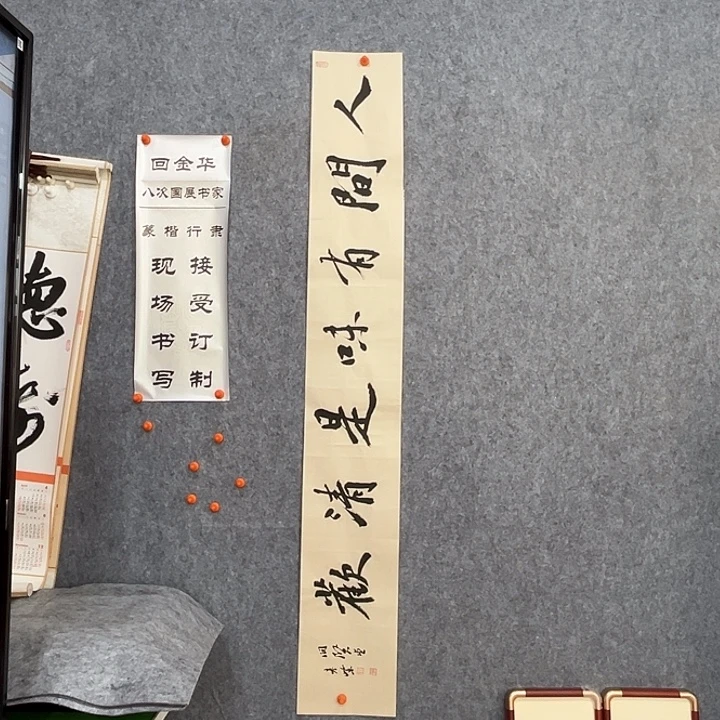 回金华
八次国展书家
篆楷行隶
现场书写
接受订制
人間有味是清歡
德